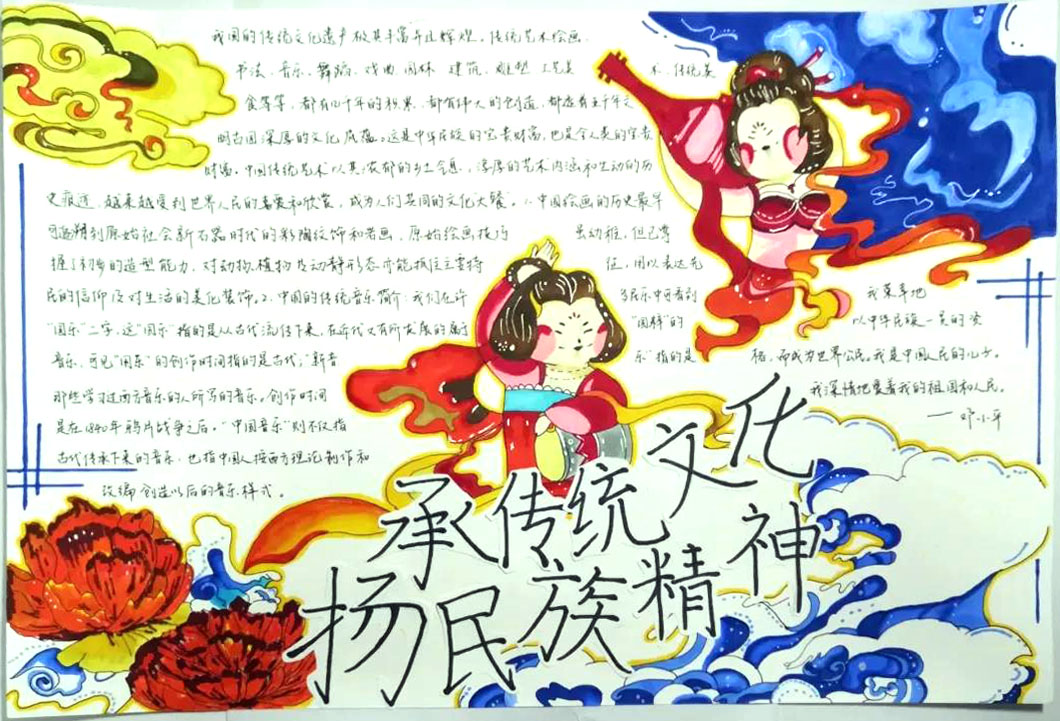 我国的传统文化遗产极其丰富并且辉煌。传统艺术绘画、
书法、音乐、舞蹈、戏曲、园林、建筑、雕塑、工艺美术、传统美
食等等，都有几千年的积累，都有伟大的创造，都應着五千年文
明古国深厚的文化底蕴。这是中华民族的宝贵财富，也是全人类的宝贵
财富。中国传统艺术以其浓郁的乡土气息，淳厚的艺术内涵和生动的历
史痕迹，越来越受到世界人民的喜爱和欣赏，成为人们共同的文化大餐。1、中国绘画的历史最早
可追朔到原始社会新石器时代的彩陶纹饰和岩画，原始绘画技巧虽幼稚，但已掌
握了初步的造型能力，对动物、植物及动静形态亦能抓住主要特征，用以表达先
民的信仰及对生活的美化装饰。2、中国的传统音乐简介：我们在许多民乐中可看到
“国乐”二字，这“国乐”指的是从古代流传下来，在近代又有所发展的属于“国粹”的
音乐，可见“国乐”的创作时间指的是古代；“新音乐”指的是
那些学习过西方音乐的人所写的音乐。创作时间
是在1840年鸦片战争之后。“中国音乐”则不仅指
古代传承下来的音乐，也指中国人按西方理论制作和
改编创造以后的音乐样式。
我荣幸地
以中华民族一员的资
格，而成为世界公民。我是中国人民的儿子。
我深情地爱着我的祖国和人民。
——邓小平
承传统文化
扬民族精神